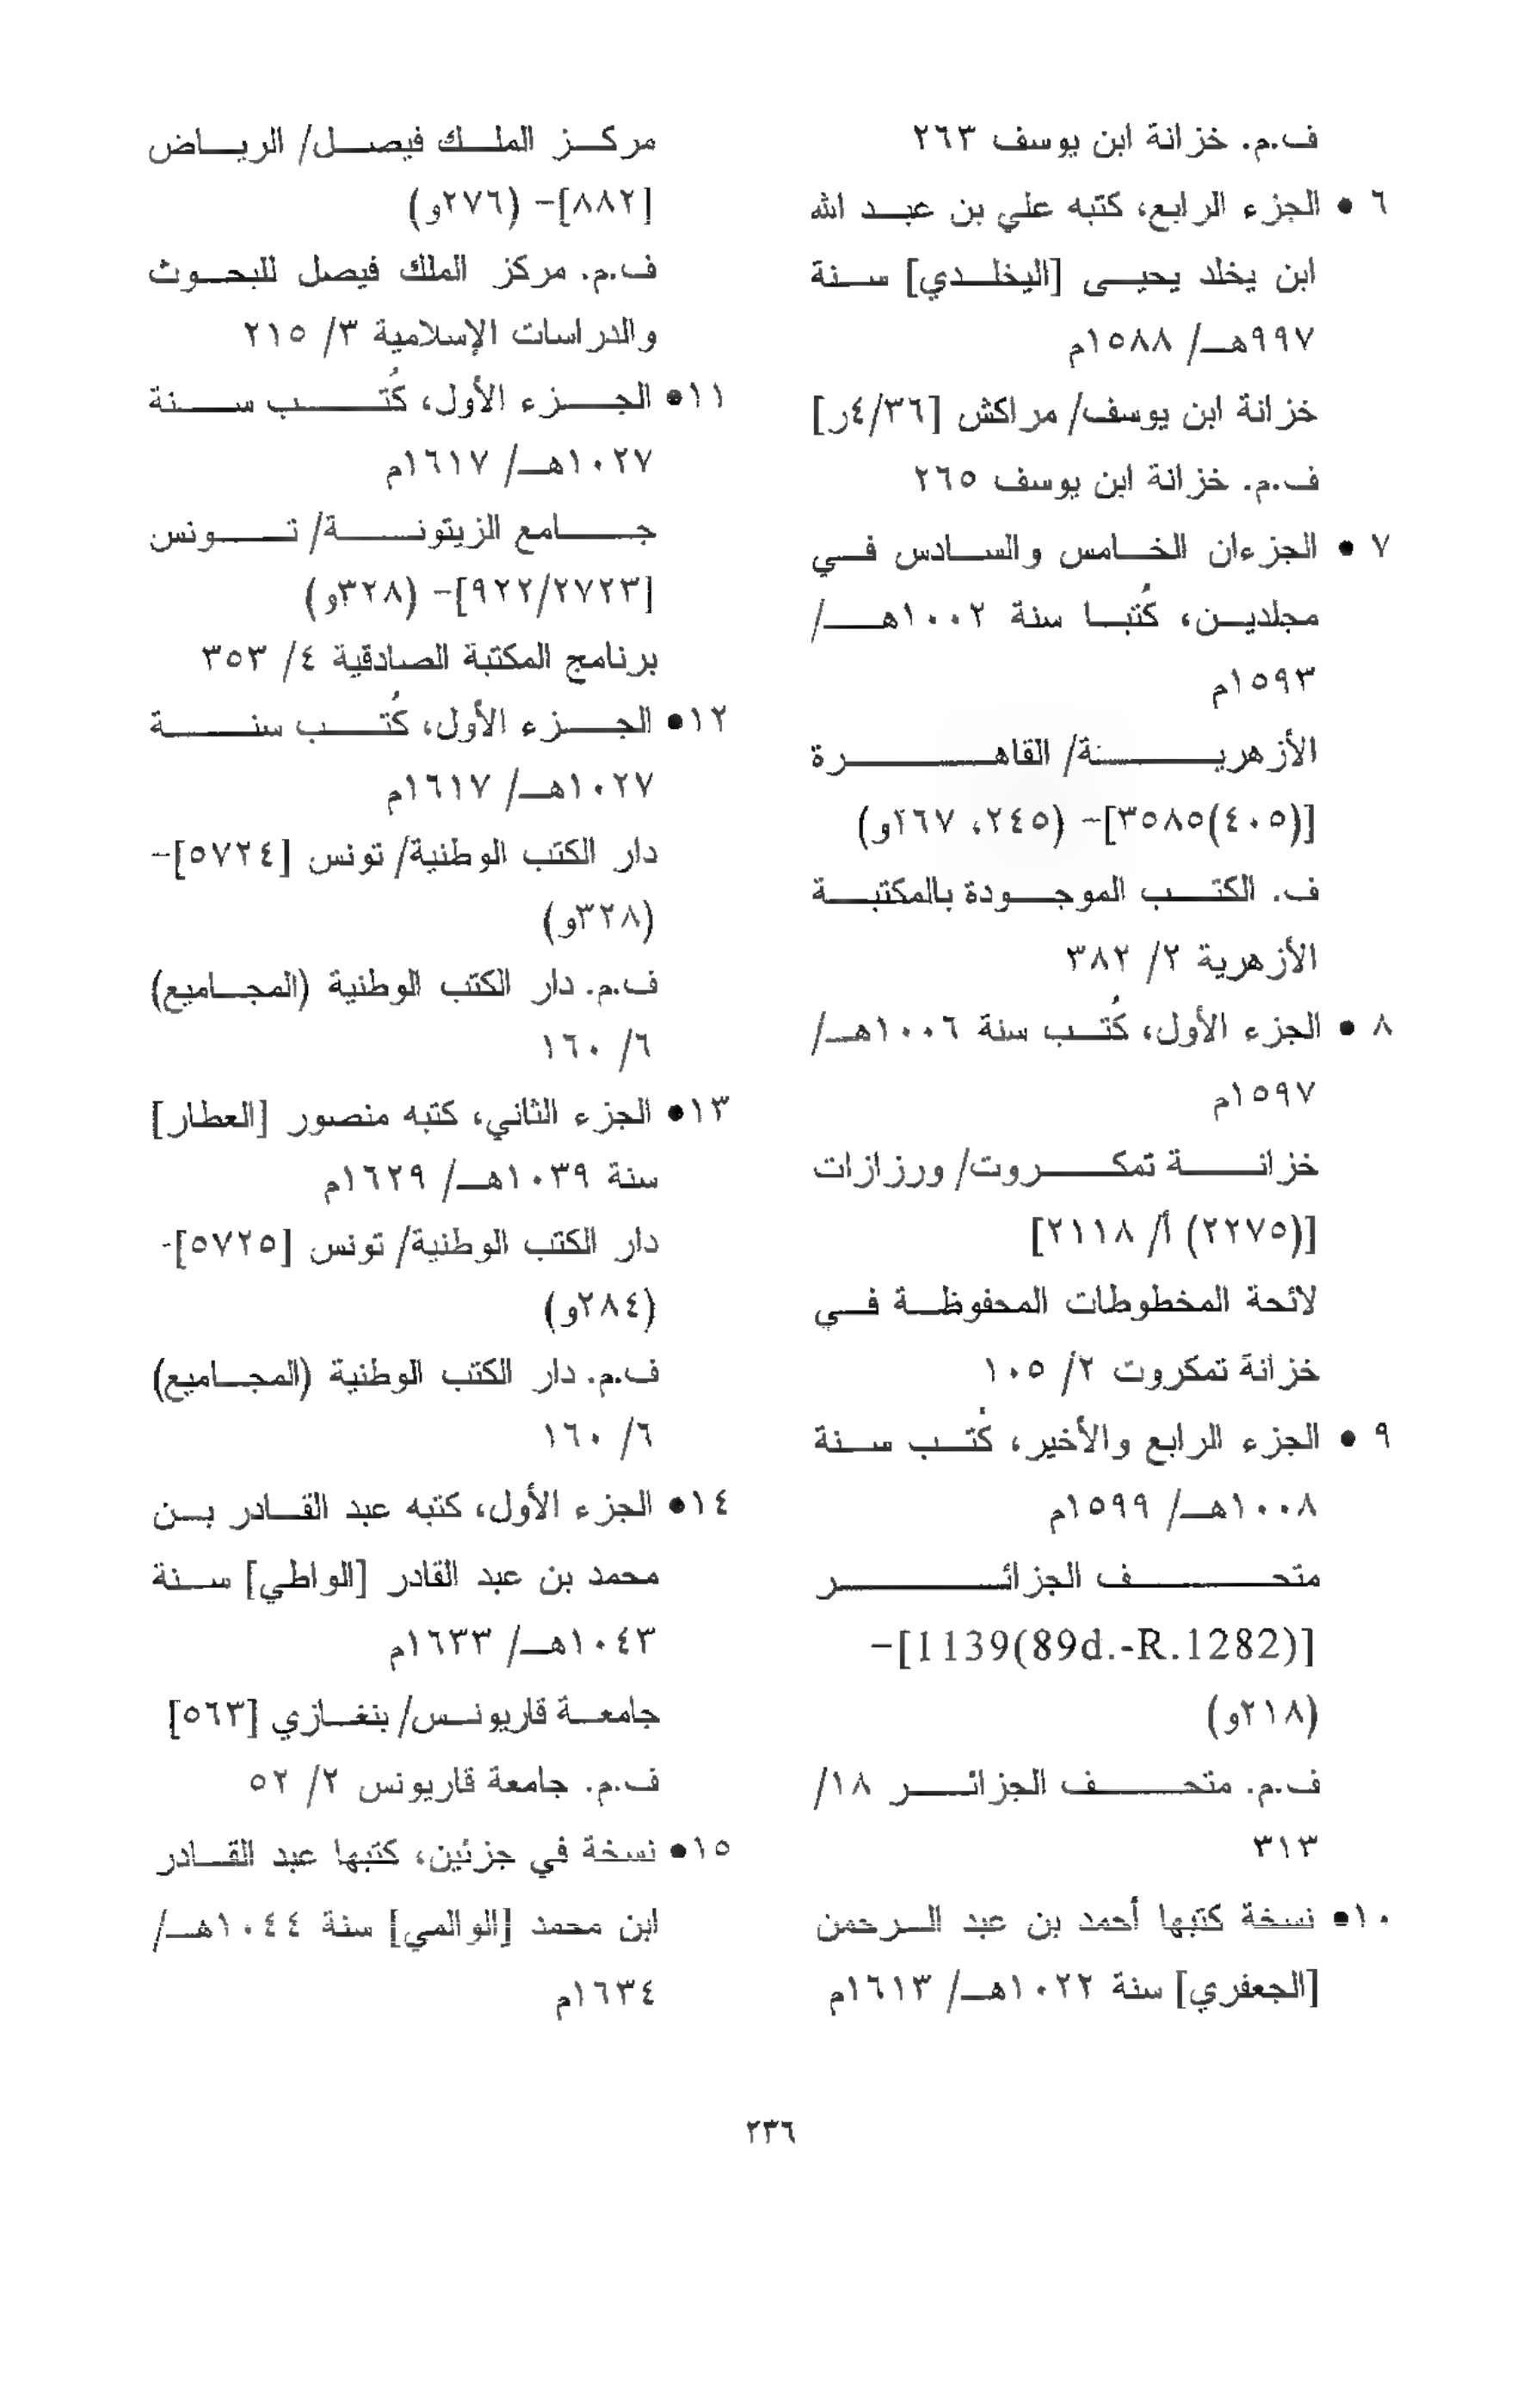 ف.م. خزانة ابن يوسف ٢٦٣
٦ • الجزء الرابع، كتبه علي بن عبد الله
ابن يخلد يحيى [اليخلدي] سنة
٩٩٧هـ/ ١٥٨٨م
خزانة ابن يوسف/ مراكش [٤/٣٦ر]
ف.م. خزانة ابن يوسف ٢٦٥
٧ • الجزءان الخامس والسادس في
مجلدين، كُتبا سنة ١٠٠٢هـ/
١٥٩٣م
الأزهرية/ القاهرة
[(٤٠٥)٣٥٨٥]- (٢٤٥، ٢٦٧و)
ف. الكتب الموجودة بالمكتبة
الأزهرية ٢/ ٣٨٢
٨ • الجزء الأول، كُتب سنة ١٠٠٦هـ/
١٥٩٧م
خزانة تمكروت/ ورزازات
[(٢٢٧٥) أ/ ٢١١٨]
لائحة المخطوطات المحفوظة في
خزانة تمكروت ٢/ ١٠٥
٩ • الجزء الرابع والأخير، كُتب سنة
١٠٠٨هـ/ ١٥٩٩م
متحف الجزائر
[1139(89d.-R.1282)]-
(٢١٨و)
ف.م. متحف الجزائر ١٨/
٣١٣
١٠• نسخة كتبها أحمد بن عبد الرحمن
[الجعفري] سنة ١٠٢٢هـ/ ١٦١٣م
مركز الملك فيصل/ الرياض
[٨٨٢]- (٢٧٦و)
ف.م. مركز الملك فيصل للبحوث
والدراسات الإسلامية ٣/ ٢١٥
١١• الجزء الأول، كُتب سنة
١٠٢٧هـ/ ١٦١٧م
جامع الزيتونة/ تونس
[٩٢٢/٢٧٢٣]- (٣٢٨و)
برنامج المكتبة الصادقية ٤/ ٣٥٣
١٢• الجزء الأول، كُتب سنة
١٠٢٧هـ/ ١٦١٧م
دار الكتب الوطنية/ تونس [٥٧٢٤]-
(٣٢٨و)
ف.م. دار الكتب الوطنية (المجاميع)
٦/ ١٦٠
١٣• الجزء الثاني، كتبه منصور [العطار]
سنة ١٠٣٩هـ/ ١٦٢٩م
دار الكتب الوطنية/ تونس [٥٧٢٥]-
(٢٨٤و)
ف.م. دار الكتب الوطنية (المجاميع)
٦/ ١٦٠
١٤• الجزء الأول، كتبه عبد القادر بن
محمد بن عبد القادر [الواطي] سنة
١٠٤٣هـ/ ١٦٣٣م
جامعة قاريونس/ بنغازي [٥٦٣]
ف.م. جامعة قاريونس ٢/ ٥٢
١٥• نسخة في جزئين، كتبها عبد القادر
ابن محمد [الوالمي] سنة ١٠٤٤هـ/
١٦٣٤م
٢٣٦